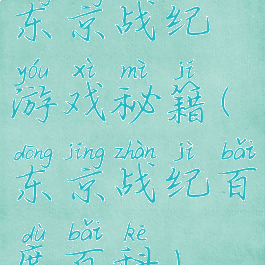 东京战纪
yóu xì mì jí
游戏秘籍(
dōng jīng zhàn jì bǎi
东京战纪百
dù bǎi kē
度百科)